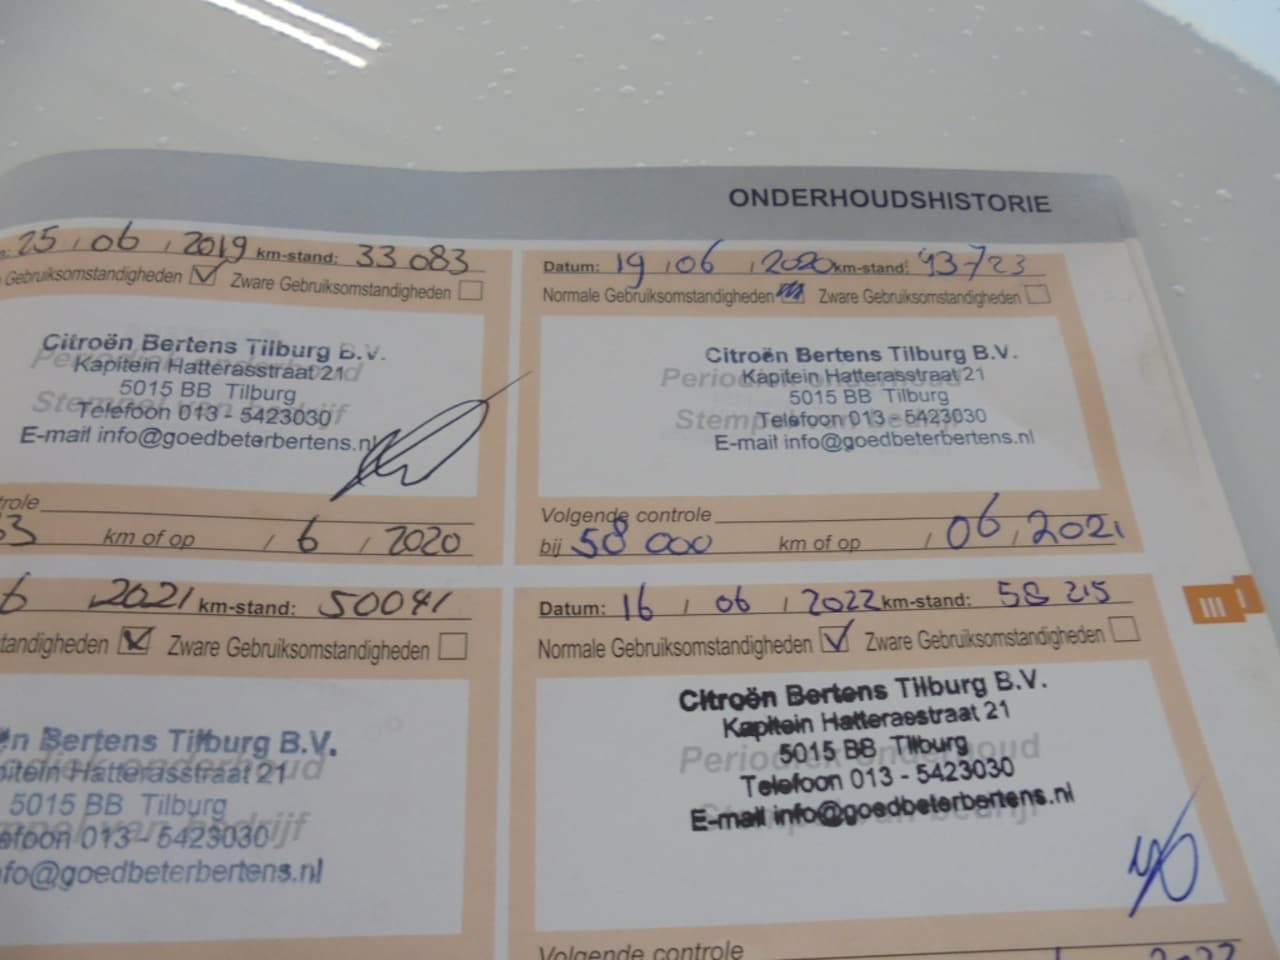 ONDERHOUDSHISTORIE
25 / 06 / 2019 km-stand: 33 083
Gebruiksomstandigheden Zware Gebruiksomstandigheden
Citroën Bertens Tilburg B.V.
Periodiek onderhoud
Kapitein Hatterasstraat 21
5015 BB Tilburg
Stempel van bedrijf
Telefoon 013 - 5423030
E-mail info@goedbeterbertens.nl
km of op / 6 / 2020
Datum: 19 / 06 / 2020 km-stand: 43723
Normale Gebruiksomstandigheden Zware Gebruiksomstandigheden
Citroën Bertens Tilburg B.V.
Periodiek onderhoud
Kapitein Hatterasstraat 21
5015 BB Tilburg
Stempel van bedrijf
Telefoon 013 - 5423030
E-mail info@goedbeterbertens.nl
Volgende controle
bij 58 000 km of op / 06 / 2021
6 2021 km-stand: 50041
Zware Gebruiksomstandigheden
Bertens Tilburg B.V.
Hatterasstraat 21
5015 BB Tilburg
013 - 5423030
Datum: 16 / 06 / 2022 km-stand: 58 215
Normale Gebruiksomstandigheden Zware Gebruiksomstandigheden
Citroën Bertens Tilburg B.V.
Kapitein Hatterasstraat 21
Periodiek onderhoud
5015 BB Tilburg
Telefoon 013 - 5423030
Stempel van bedrijf
E-mail info@goedbeterbertens.nl
Volgende controle
III